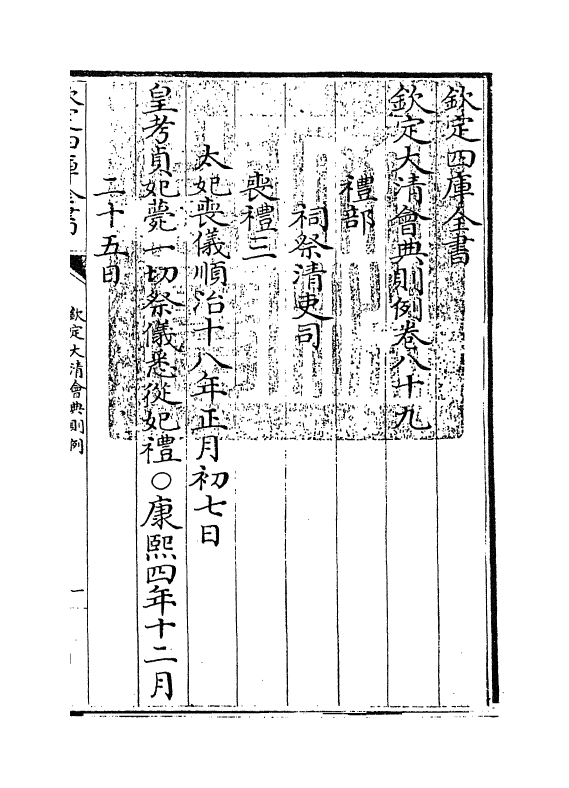 欽定四庫全書
欽定大清會典則例卷八十九
禮部
祠祭清吏司
喪禮三
太妃喪儀順治十八年正月初七日
皇考貞妃薨一切祭儀悉從妃禮○康熙四年十二月
二十五日
欽定四庫全書
欽定大清會典則例
一